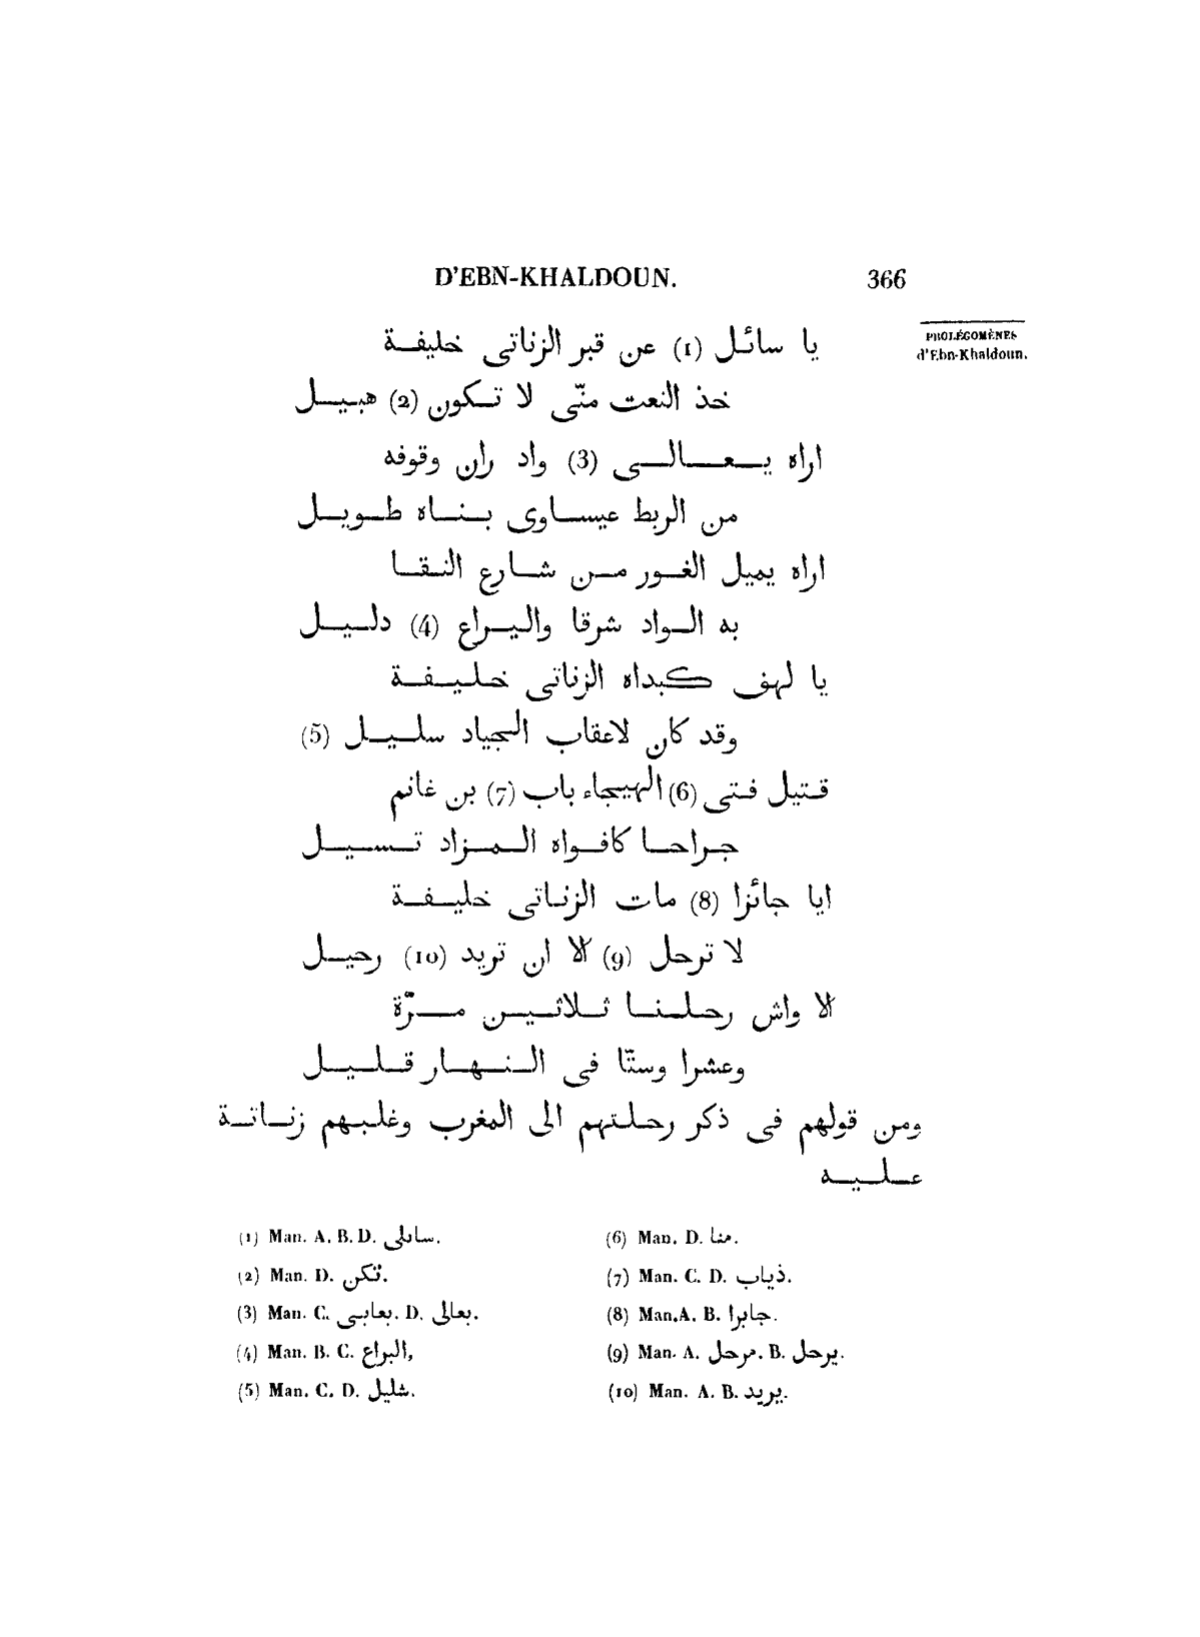 D'EBN-KHALDOUN. 366
PROLÉGOMÈNES
d'Ebn-Khaldoun.
يا سائل (1) عن قبر الزناتى خليفة
خذ النعت منّى لا تكون (2) هبيل
اراه يعالى (3) واد ران وقوفه
من الربط عيساوى بناه طويل
اراه يميل الغور من شارع النقا
به الواد شرقا واليراع (4) دليل
يا لهف كبداه الزناتى خليفة
وقد كان لاعقاب الجياد سليل (5)
قتيل فتى (6) الهيجاء باب (7) بن غانم
جراحا كافواه المزاد تسيل
ايا جائزا (8) مات الزناتى خليفة
لا ترحل (9) الا ان تريد (10) رحيل
الا واش رحلنا ثلاثين مرّة
وعشرا وستّا فى النهار قليل
ومن قولهم فى ذكر رحلتهم الى المغرب وغلبهم زناتة
عليه
(1) Man. A. B. D. سايلى.
(2) Man. D. تكن.
(3) Man. C. بعابى. D. بعالى.
(4) Man. B. C. البراع,
(5) Man. C. D. شليل.
(6) Man. D. منا.
(7) Man. C. D. ذياب.
(8) Man. A. B. جابرا.
(9) Man. A. مرحل. B. يرحل.
(10) Man. A. B. يريد.